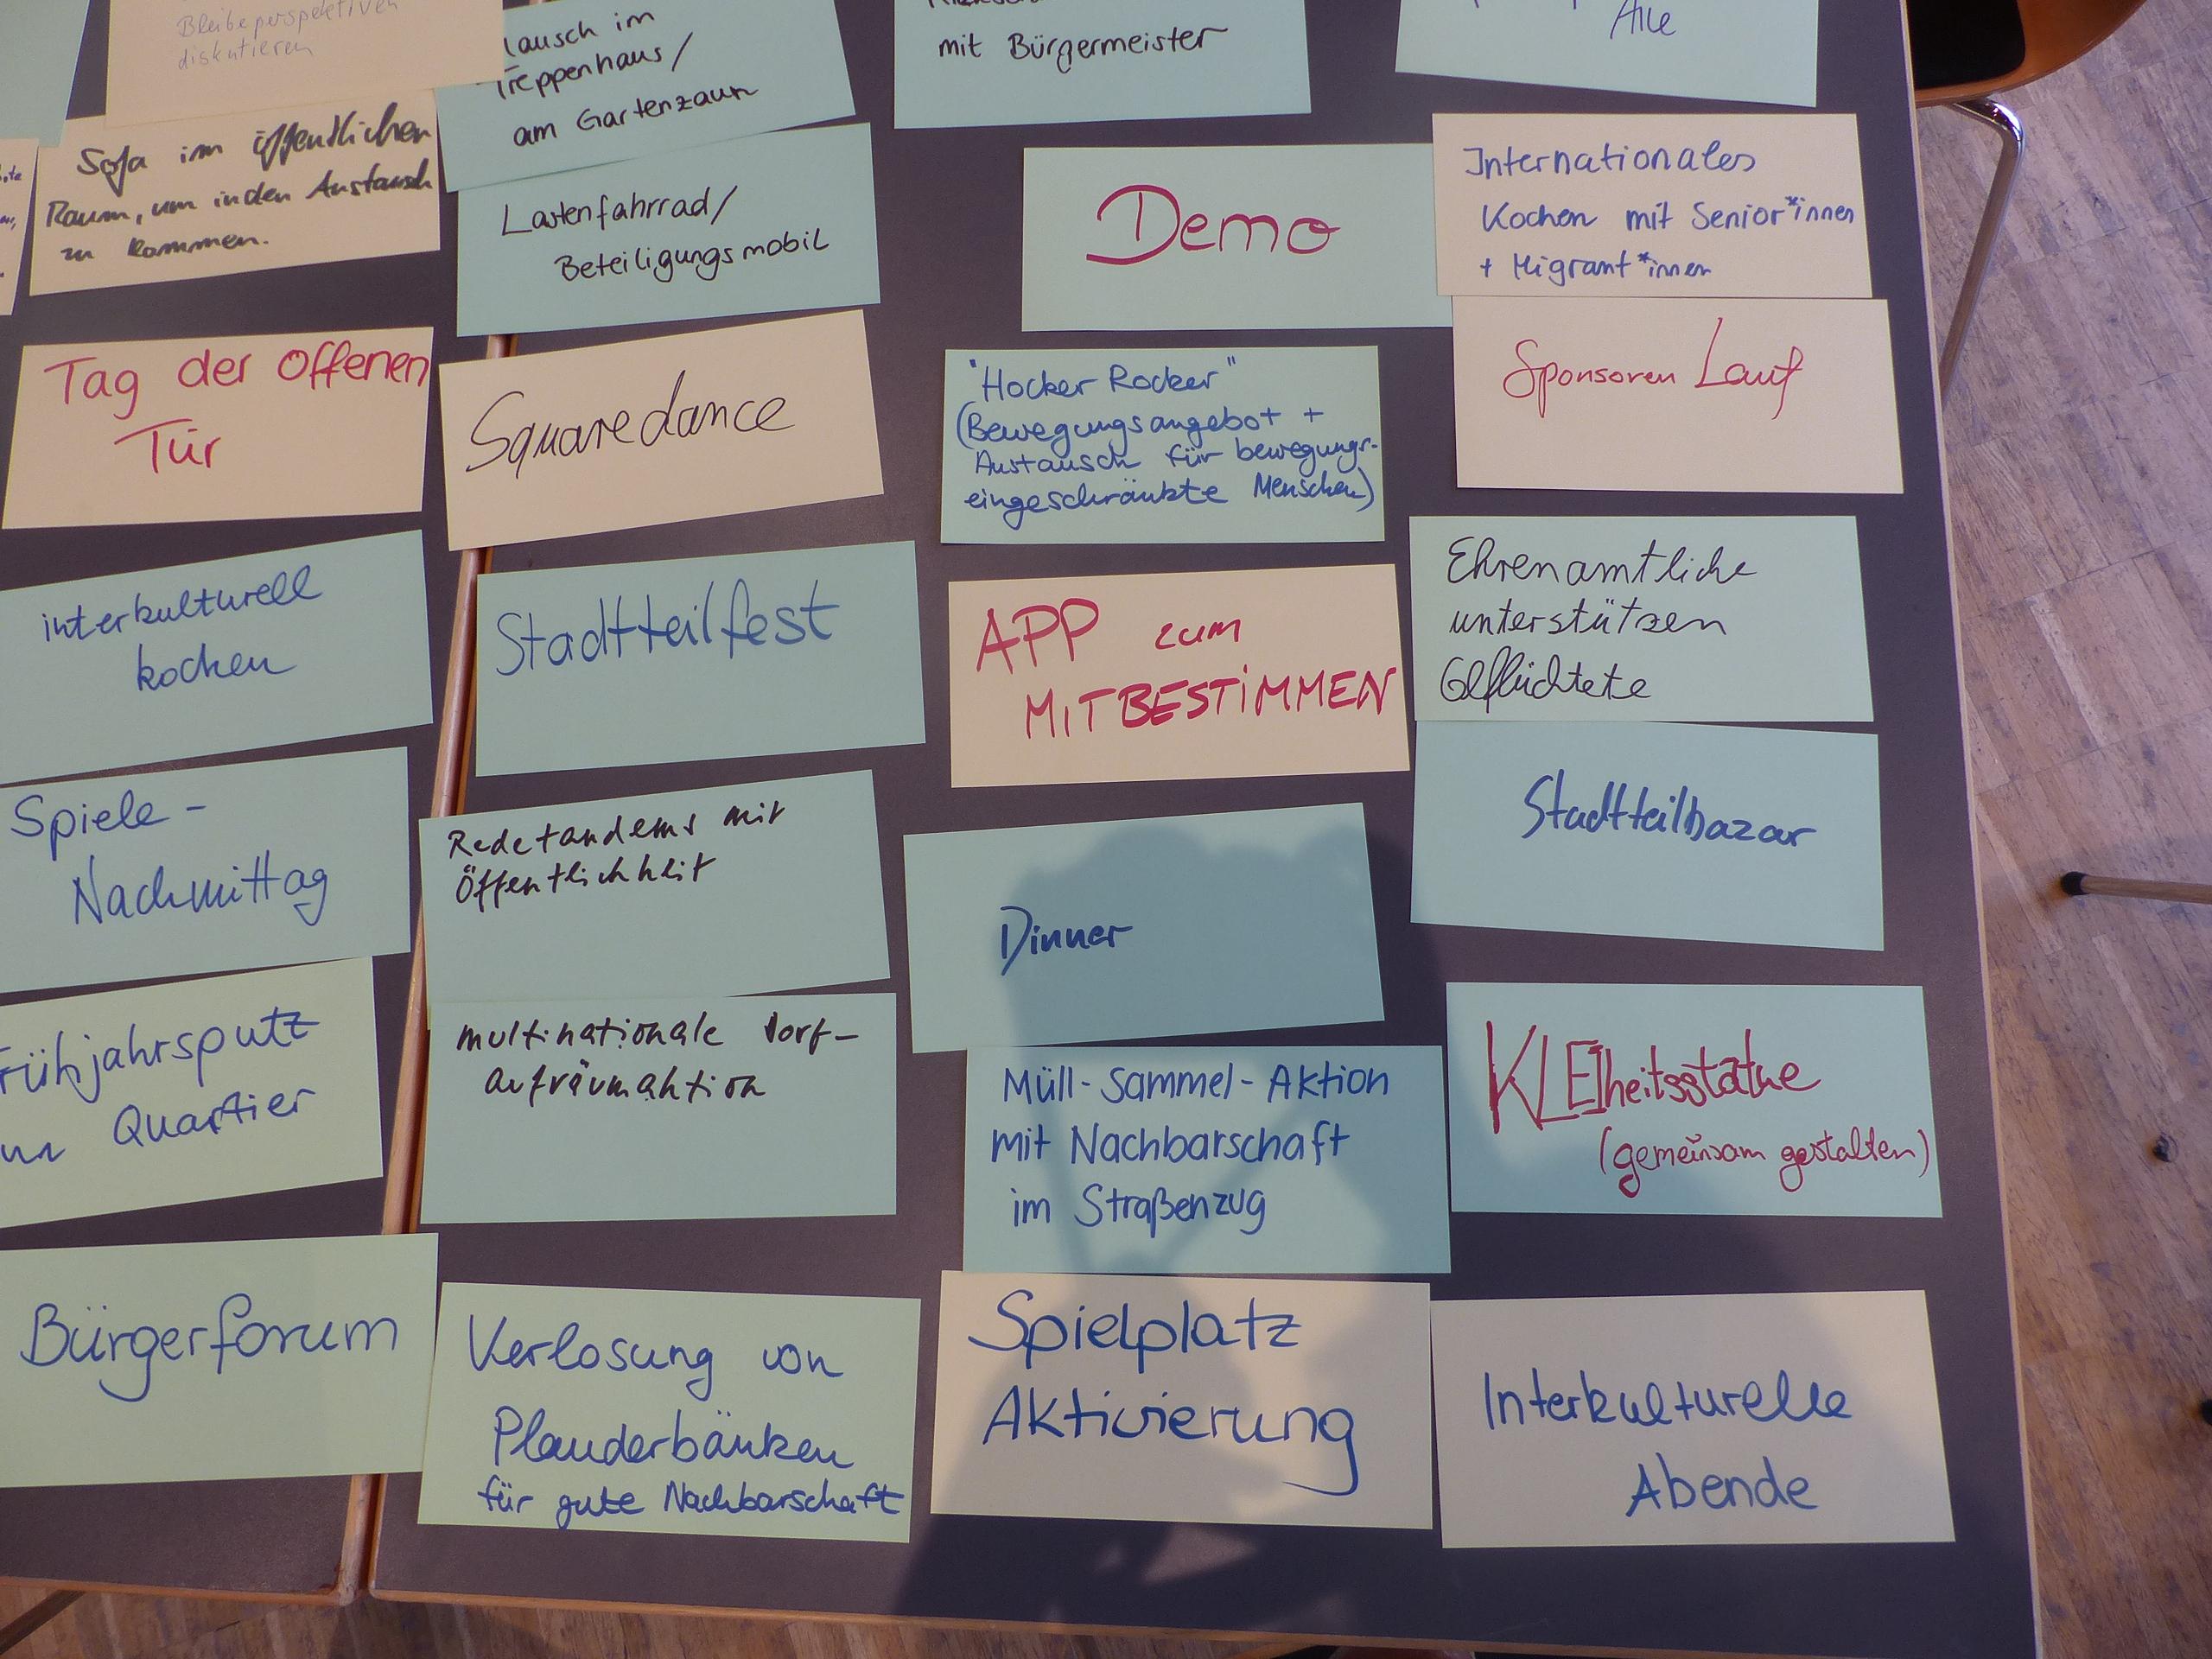 Bleibeperspektiven
diskutieren
Sofa im öffentlichen
Raum, um in den Austausch
zu kommen.
Tag der offenen
Tür
interkulturell
kochen
Spiele-
Nachmittag
Frühjahrsputz
im Quartier
Bürgerforum
Treppenhaus/
am Gartenzaun
Lastenfahrrad/
Beteiligungsmobil
Squaredance
Stadtteilfest
Redetandems mit
Öffentlichkeit
multinationale Dorf-
aufräumaktion
Verlosung von
Plauderbänken
für gute Nachbarschaft
mit Bürgermeister
Demo
"Hocker Rocker"
(Bewegungsangebot +
Austausch für bewegungs-
eingeschränkte Menschen)
APP zum
MITBESTIMMEN
Dinner
Müll-Sammel-Aktion
mit Nachbarschaft
im Straßenzug
Spielplatz
Aktivierung
Alle
Internationales
Kochen mit Senior*innen
+ Migrant*innen
Sponsoren Lauf
Ehrenamtliche
unterstützen
Geflüchtete
Stadtteilbazar
(gemeinsam gestalten)
Interkulturelle
Abende